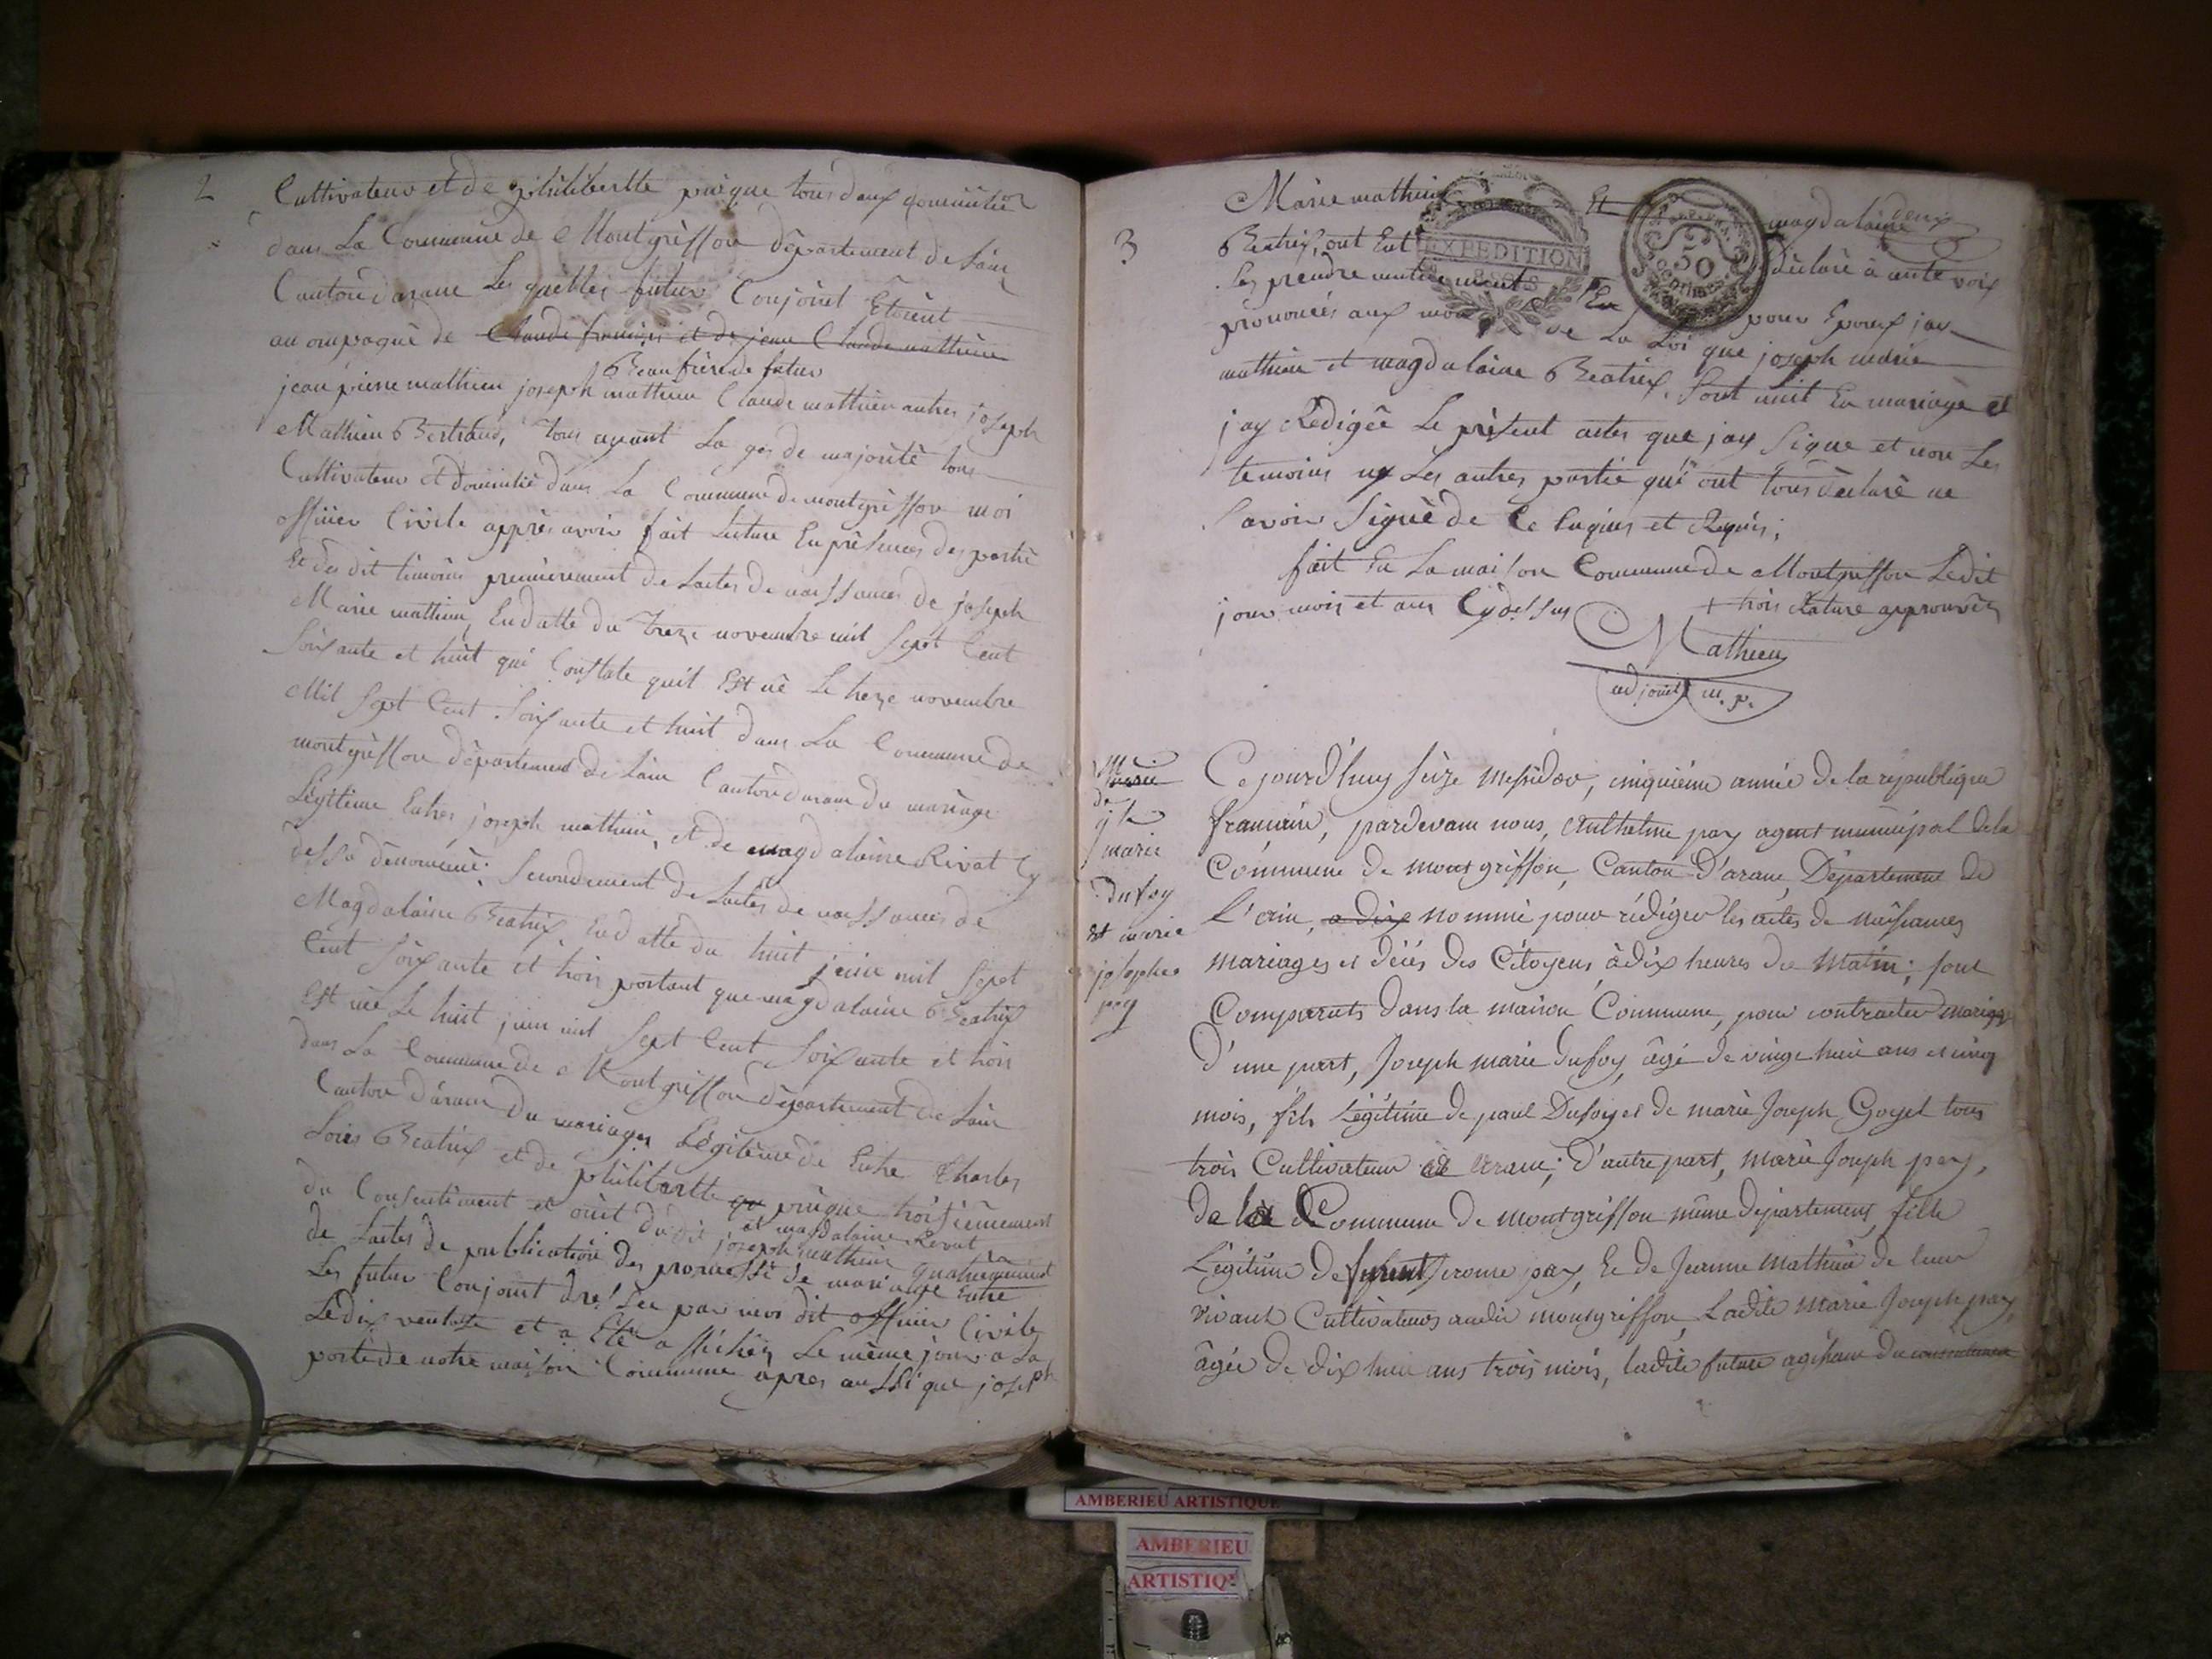 2
Cultivateur et de philiberthe pinque tous deux domicilié
dans La Commune de Montgriffon département de Lain
Canton daranc Les quelles futur Conjoint Etoient
accompagné de Claude françois et de jean Claude mathieu
Beaufrère de futur
jean pierre mathieu joseph mathieu Claude mathieu autres joseph
Mathieu Bertrand, tous ayant La ge de majorité tous
Cultivateur et domicilié dans La Commune de montgriffon moi
officier Civile apprès avoir fait Lecture En présences des partie
Et des dit témoins premièrement de Lactes de naissances de joseph
Marie mathieu, En datte du treze novembre mil Sept Cent
Soixante et huit qui Constate quil Est né Le treze novembre
Mil Sept Cent Soixante et huit dans La Commune de
montgriffon département de Lain Canton daranc du mariage
Légitime Entres joseph mathieu, et de magdalaine Rivat Cy
desso dénommé; Secondement de Lactes de naissances de
Magdalaine Beatrix En datte du huit juin mil Sept
Cent Soixante et trois portant que magdalaine Beatrix
Est née Le huit juin mil Sept Cent Soixante et trois
dans La Commune de Montgriffon département de Lain
Canton daranc du mariages Légitime de Entre Charles
Loies Beatrix et de philiberthe pinque troisièmement
du Consentiment et dudit joseph mathieu
et magdalaine Rivat
quatriemement
de Lactes de publication des promesse de mariage Entre
Les futur Conjoint dressée par moi dit officier Civile
Le dix ventose et a Eté affichée Le même jour a La
porte de notre maison Commune apres aussi que joseph
3
Marie mathieu Et magdalaine
Beatrix, ont Eut déclaré à aute voix
EXPEDITION
50
Se prendre mutuelement pour Epoux jay
prononcés aux nom de La Loi que joseph marie
mathieu et magdalaine Beatrix. Sont unit En mariage et
jay Rédigée Le présent actes que jay Signe et non Les
temoins ny Les autres partie qui ont tous déclaré ne
Savoir Signé de Ce Enquis et Requis;
fait En La maison Commune de Montgriffon Ledit
jour mois et an Cydessus
+ trois Rature approuvées
Mathieu
adjoint m. p.
marie
marie
Dufoy
et marie
josephe
pey
Ce jourd'huy seize Messidor, cinquième année de la république
francaise, pardevant nous, Anthelme pey agent municipal dela
Commune de montgriffon, Canton d'aranc, Département de
L'ain, a dix nommé pour rédiger les actes de Naissances
mariages et décès des Citoyens, à dix heures du Matin; sont
Comparuts dans la maison Commune, pour contracter mariage
d'une part, Joseph marie dufoy, âgé de vingt huit ans et cinq
mois, fils Légitime de paul Dufoy et de marie Joseph Goyet tous
trois Cultivateur de Aranc; d'autre part, marie Joseph pey,
de la Commune de montgriffon même département, fille
Légitime de Jerome pey, Et de Jeanne Mathieu de leur
vivant Cultivateurs audit montgriffon, Ladite marie Joseph pey,
âgée de dix huit ans trois mois, ladite future agissant du consentement
AMBERIEU ARTISTIQUE
AMBERIEU
ARTISTIQ